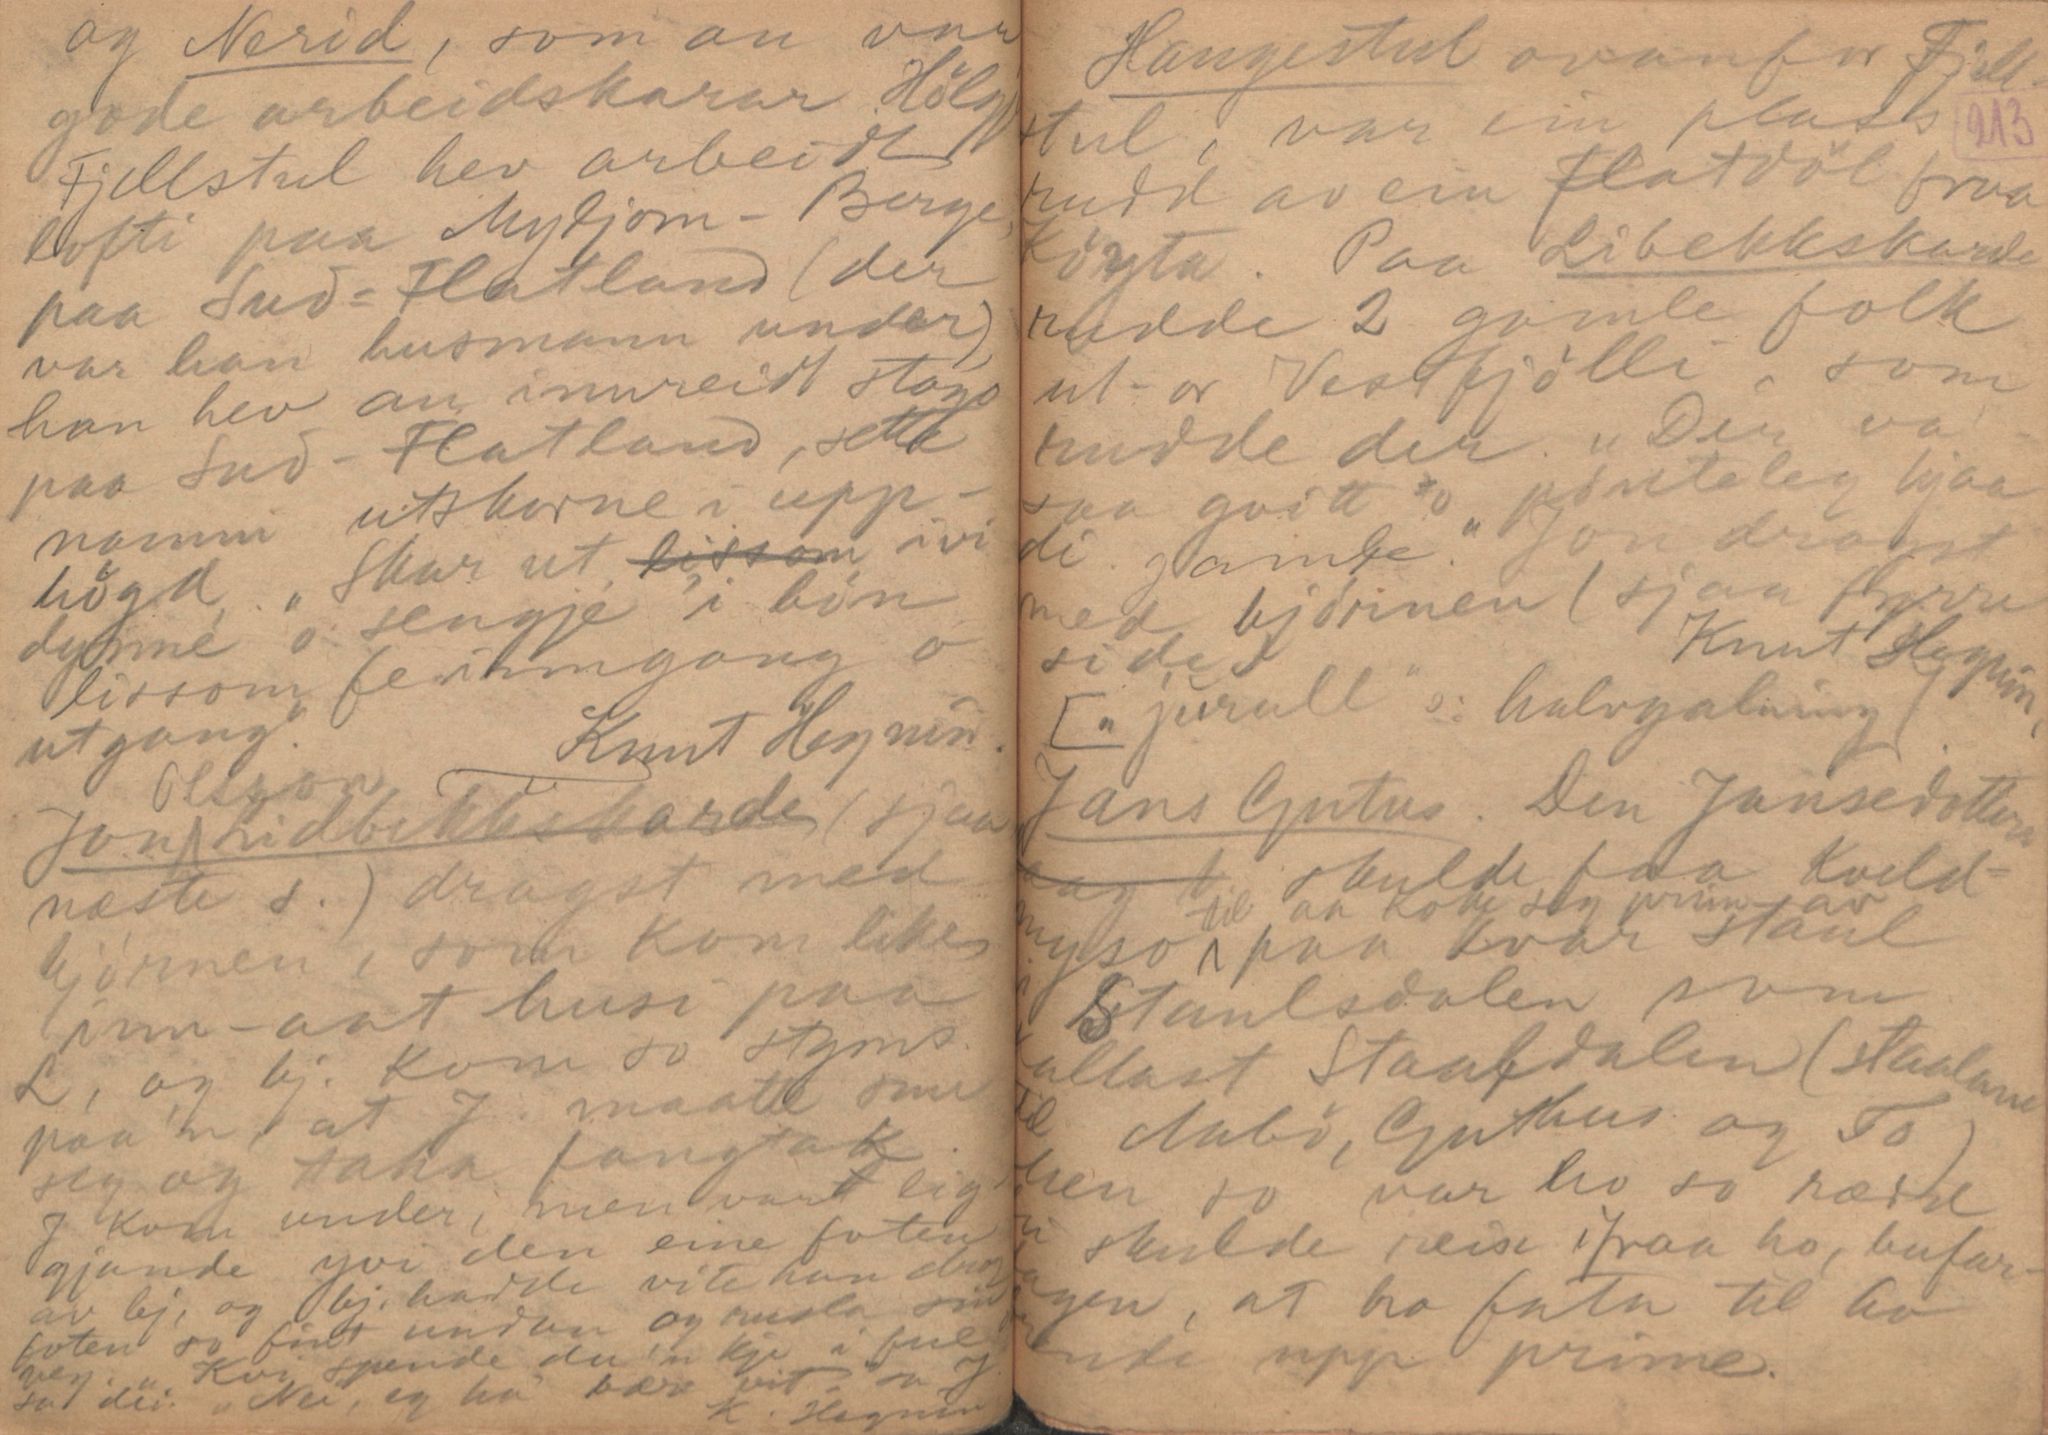 og Nerid, som au var
gode arbeidskarar. Hölg
Fjellstul hev arbeidt
lofti paa Mydjom-Berge,
paa Sud-Flatland (der
var han husmann under),
han hev au innreidt stogo
paa Sud-Flatland, sette
namni utskorne i upp-
högd. „Skar ut lissom ivi
dynne o sengje" i bön
lissom fe inngang o
utgang."
Knut Hegnin.
Olsson
Jon Lidbekkskarde (sjaa
næste s.) drogst med
bjørnen, som kom likes
inn-aat husi paa
L, og bj. kom so styms
paa'n, at J. maatte snu
seg og taka fangtak.
J kom under, men vart lig-
gjande yvi den eine foten
av bj, og bj. hadde vite han drog
foten so fint undan og rusla sin
veg. „Kvi spende du'n kje i ful"
sa dei. „Nei, eg ha bære vit" sa J
K. Hegnin
Haugestul ovanfor Fjell-
213
stul, var ein plass
rudd av ein Flatdöl fraa
Röyta. Paa Libekkskarde
rudde 2 gamle folk
ut-or Vestfjølli, som
rudde der. „Der va
saa gvitt o pönteleg hjaa
di gamle." Jon drogst
med bjørnen (sjaa fyrre
side)
Knut Hegnin.
[„jurall" ɔ: halvgalning]
Jans Gutus. Den Jansedotteri
skulde faa Kveld-
til aa koke seg prim av
myso paa kvar staul
i Staulsdalen som
kallast Stauldalen (staulane
til Aabö, Guthus og To)
Men so var ho so rædd
dei skulde reise ifraa ho, bufar-
dagen, at ho fata til ho
upp prime.